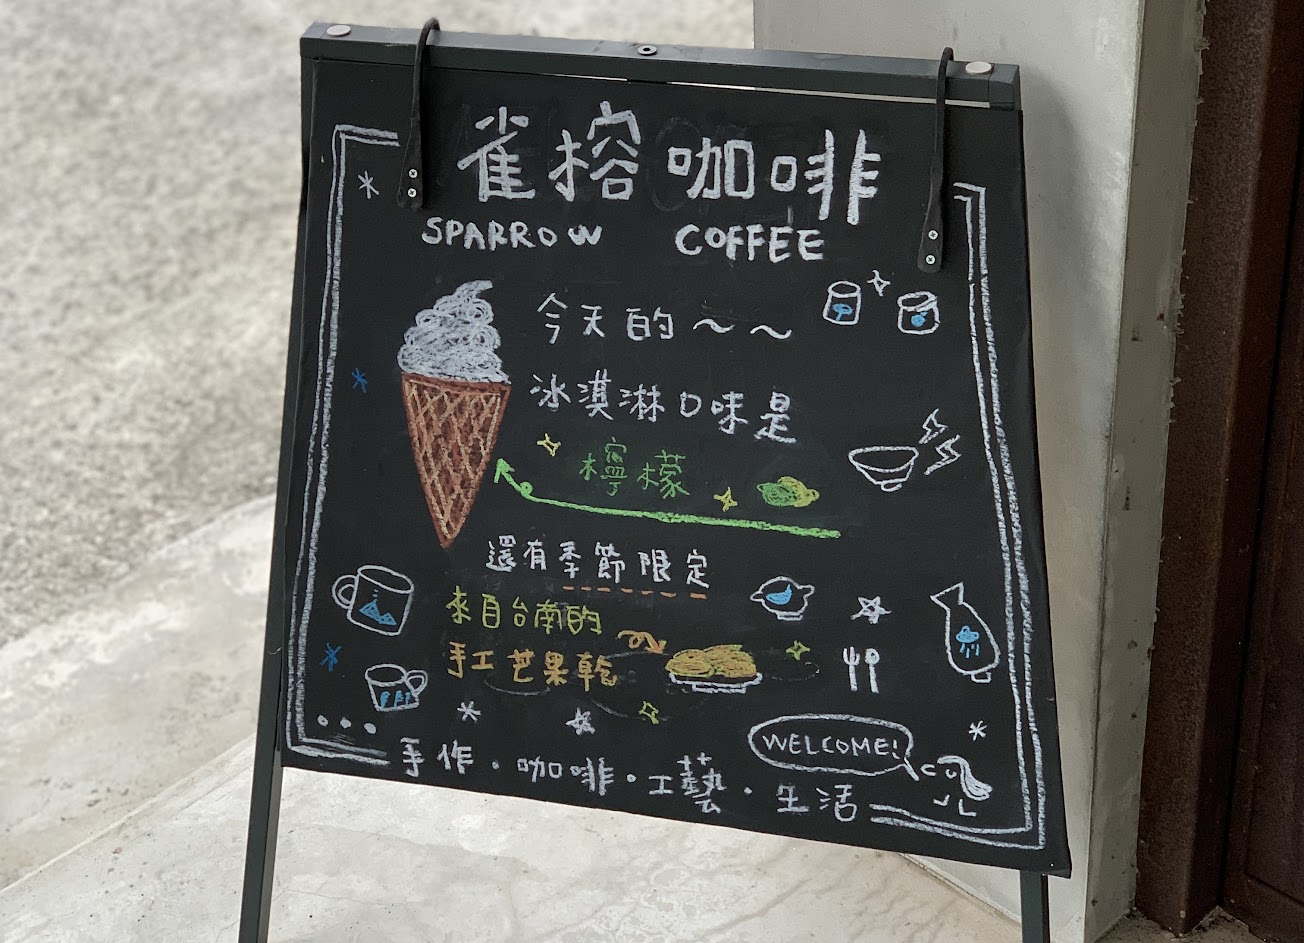 雀榕咖啡
SPARROW COFFEE
今天的～～
冰淇淋口味是
檸檬
還有季節限定
來自台南的
手工芒果乾
WELCOME!
手作・咖啡・工藝・生活